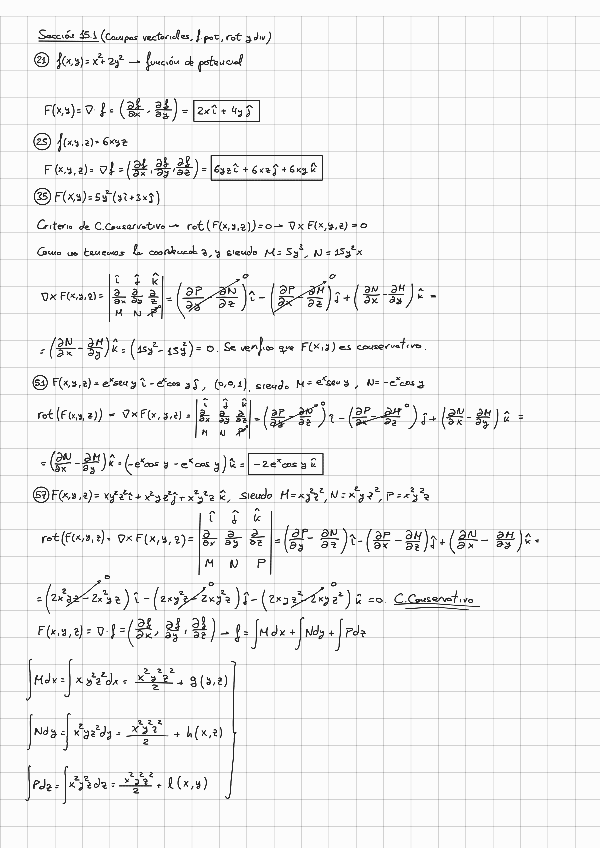 Sección 15.1 (Campos vectoriales, f. pot, rot y div)
(21) f(x,y) = x² + 2y² → función de potencial
F(x,y) = ∇·f = (∂f/∂x, ∂f/∂y) = 2x î + 4y ĵ
(25) f(x,y,z) = 6xyz
F(x,y,z) = ∇f = (∂f/∂x, ∂f/∂y, ∂f/∂z) = 6yz î + 6xz ĵ + 6xy k̂
(35) F(x,y) = 5y²(yî + 3xĵ)
Criterio de C. Conservativo → rot(F(x,y,z)) = 0 → ∇×F(x,y,z) = 0
Como no tenemos la coordenada z, y siendo M = 5y³, N = 15y²x
∇×F(x,y,z) = | î ĵ k̂ ; ∂/∂x ∂/∂y ∂/∂z ; M N P⁰ | = (∂P/∂y - ∂N/∂z)⁰ î - (∂P/∂x - ∂M/∂z)⁰ ĵ + (∂N/∂x - ∂M/∂y) k̂ =
= (∂N/∂x - ∂M/∂y) k̂ = (15y² - 15y²) = 0. Se verifica que F(x,y) es conservativo.
(51) F(x,y,z) = eˣ sen y î - eˣ cos y ĵ, (0,0,1), siendo M = eˣ sen y, N = -eˣ cos y
rot(F(x,y,z)) = ∇×F(x,y,z) = | î ĵ k̂ ; ∂/∂x ∂/∂y ∂/∂z ; M N P⁰ | = (∂P/∂y - ∂N/∂z)⁰ î - (∂P/∂x - ∂M/∂z)⁰ ĵ + (∂N/∂x - ∂M/∂y) k̂ =
= (∂N/∂x - ∂M/∂y) k̂ = (-eˣ cos y - eˣ cos y) k̂ = -2eˣ cos y k̂
(57) F(x,y,z) = xy²z² î + x²yz² ĵ + x²y²z k̂, siendo M = xy²z², N = x²yz², P = x²y²z
rot(F(x,y,z) = ∇×F(x,y,z) = | î ĵ k̂ ; ∂/∂x ∂/∂y ∂/∂z ; M N P | = (∂P/∂y - ∂N/∂z) î - (∂P/∂x - ∂M/∂z) ĵ + (∂N/∂x - ∂M/∂y) k̂ =
= (2x²yz - 2x²yz)⁰ î - (2xy²z - 2xy²z)⁰ ĵ - (2xyz² - 2xyz²)⁰ k̂ = 0. C. Conservativo
F(x,y,z) = ∇·f = (∂f/∂x, ∂f/∂y, ∂f/∂z) → f = ∫Mdx + ∫Ndy + ∫Pdz
∫Mdx = ∫xy²z²dx = x²y²z²/2 + g(y,z)
∫Ndy = ∫x²yz²dy = x²y²z²/2 + h(x,z)
∫Pdz = ∫x²y²zdz = x²y²z²/2 + l(x,y)